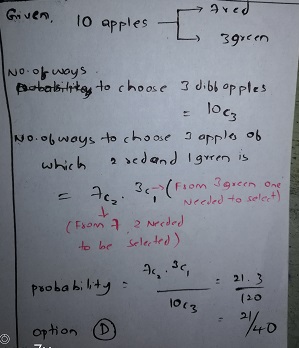 Given, 10 apples → 7 red
→ 3 green
No. of ways
Probability to choose 3 diff apples
= 10c3
No. of ways to choose 3 apples of
which 2 red and 1 green is
= 7c2 . 3c1 → (From 3 green one
needed to select)
↓
(From 7 2 Needed
to be selected)
probability = 7c2 . 3c1 / 10c3 = 21.3 / 120
= 21/40
option D